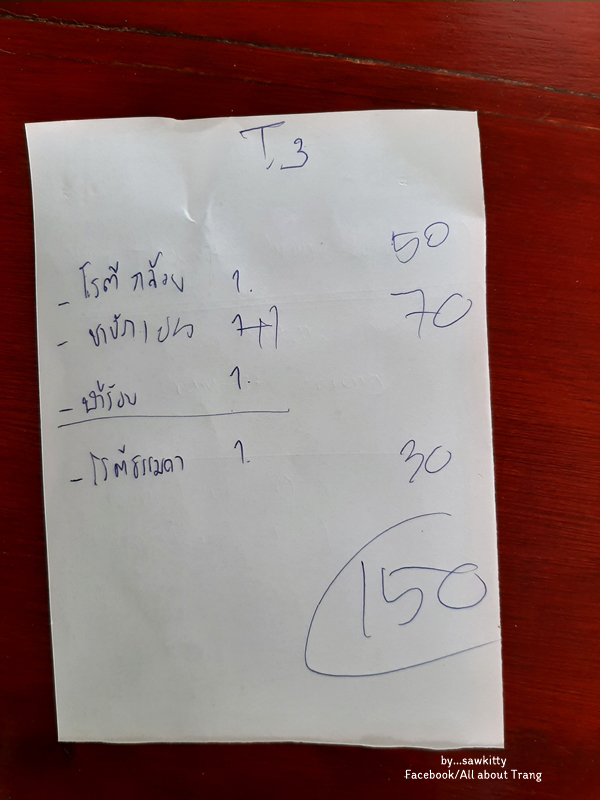 T.3
- โรตี กล้วย 1. 50
- ชาชัก เย็น 1+1 70
- ชาร้อน 1.
- โรตีธรรมดา 1. 30
150
by...sawkitty
Facebook/All about Trang